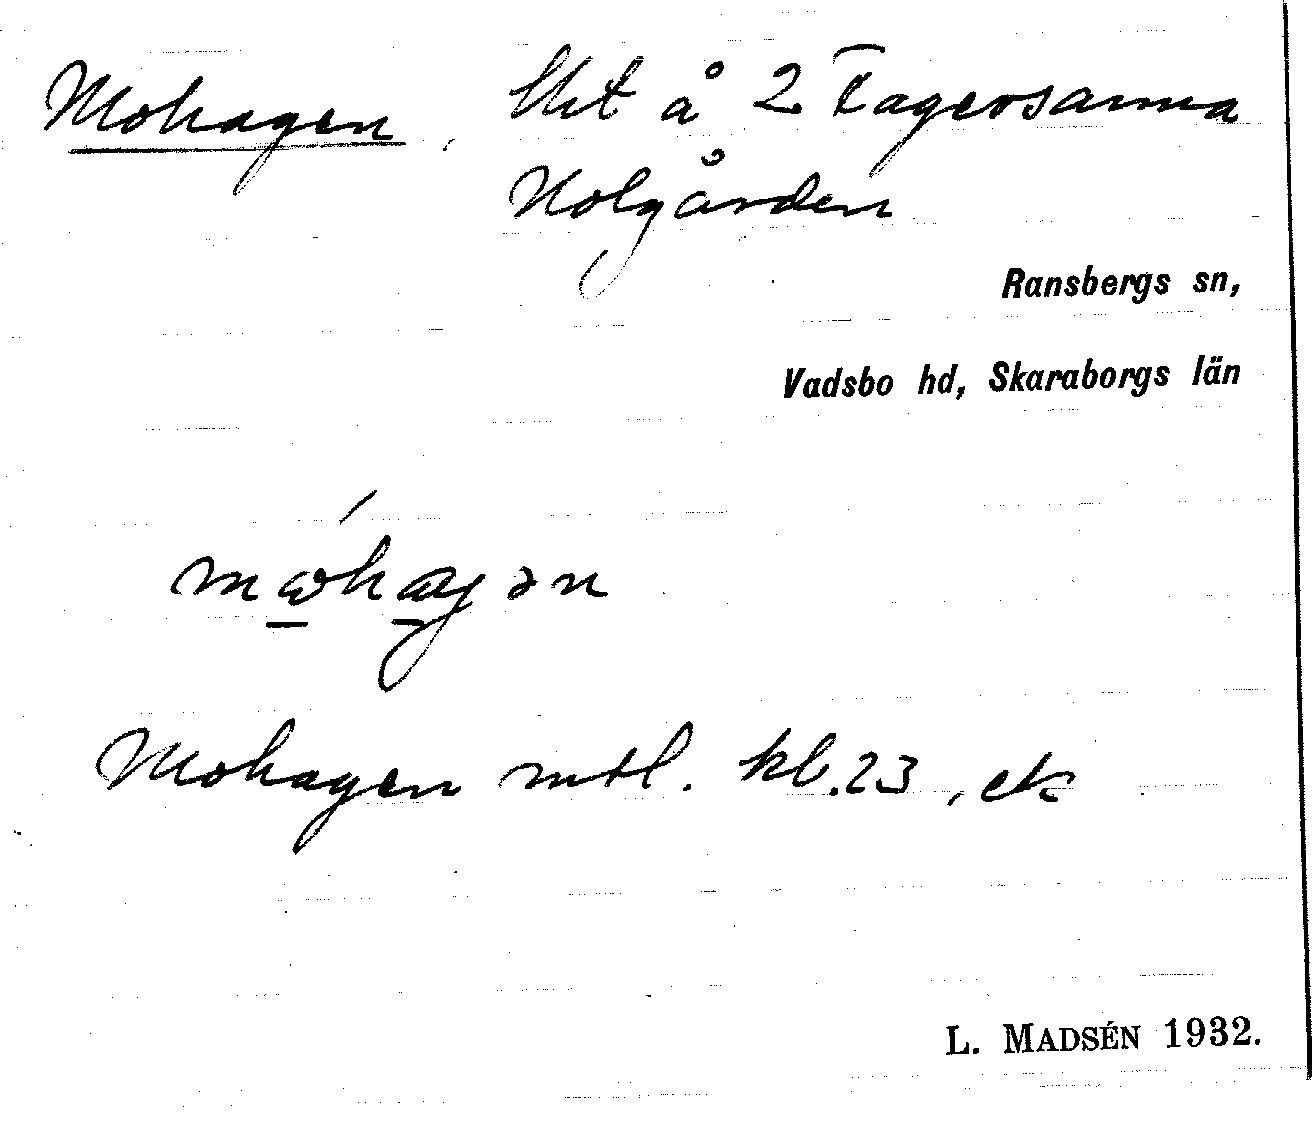 Mohagen, lht å 2 Fagersanna
Holgården
Ransbergs sn,
Vadsbo hd, Skaraborgs län
Mohagen mtl. kl. 23, ek
L. MADSÉN 1932.